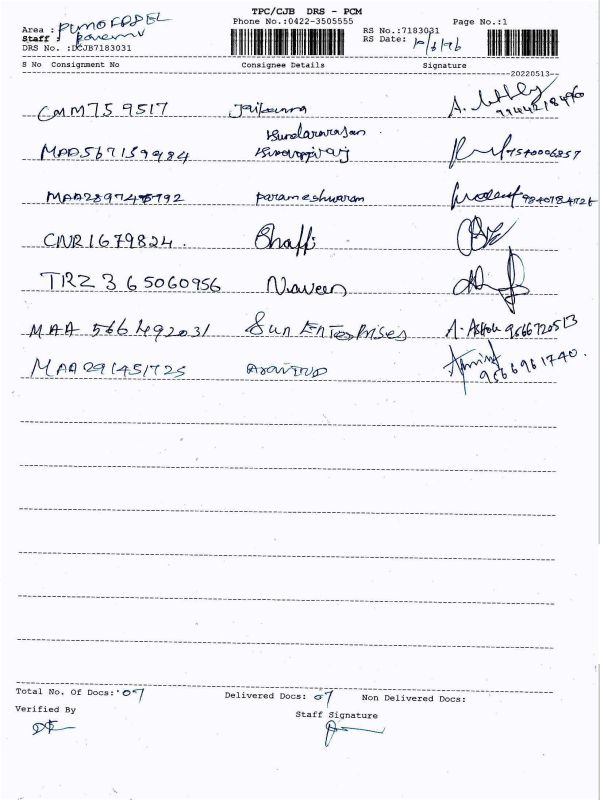 TPC/CJB DRS - PCM
Phone No.:0422-3505555 Page No.:1
Area :
Staff :
RS No.:7183031
DRS No. :DCJB7183031
RS Date:
S No Consignment No Consignee Details Signature
20220513
CMM759517
Sundararajan
MAA567159984 7540006857
MAA289745792 Parameshwaran 9840784726
CNR1679824. Shaffi
TRZ 365060956 Naveen
MAA 566492031 Sun Enterprises A. Ashok 9566720513
MAA291451725 Aravind 9566961740.
Total No. Of Docs: 07 Delivered Docs: 07 Non Delivered Docs:
Verified By
Staff Signature